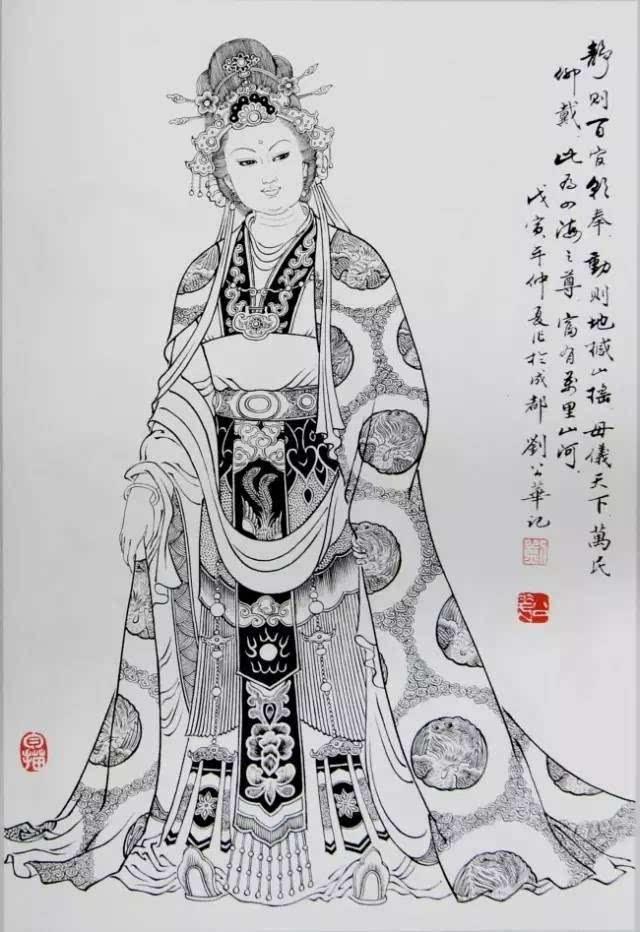 靜则百官朝奉 動则地撼山摇 母儀天下 萬民
仰戴 此为四海之尊 富有萬里山河
戊寅年仲夏作於成都 劉公華记
白描